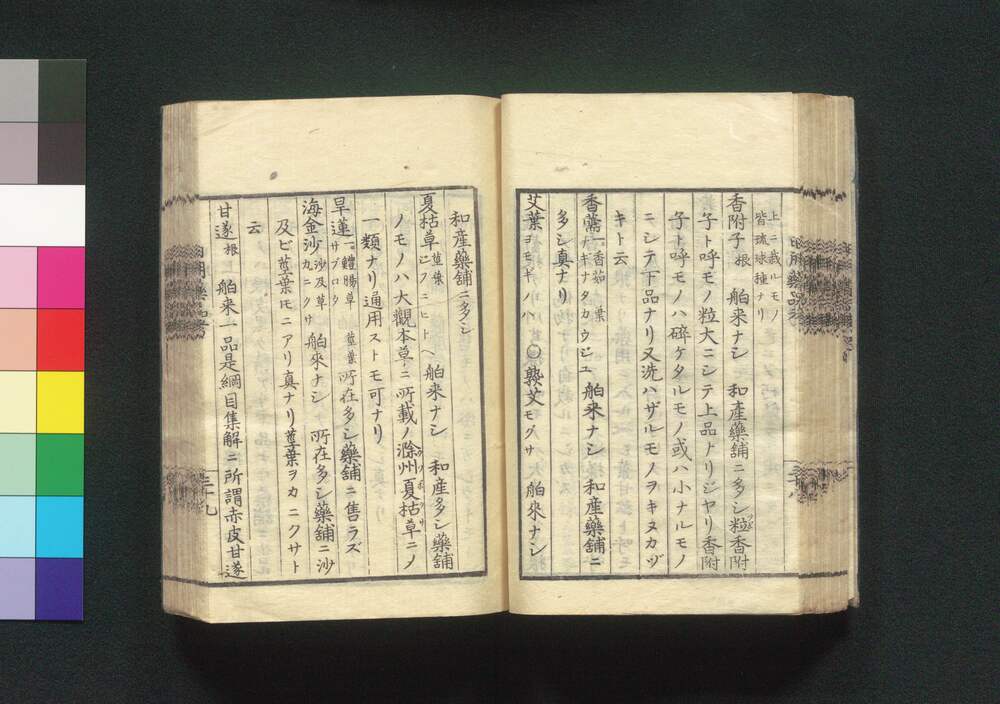 上ニ載ルモノ
皆琉球種ナリ
香附子 根 舶来ナシ 和産藥舗ニ多シ粒香附
子ト呼モノ粒大ニシテ上品ナリジヤリ香附
子ト呼モノハ碎ケタルモノ或ハ小ナルモノ
ニシテ下品ナリ又洗ハザルモノヲキヌカヅ
キト云
香薷 一香茹 葉 ナギナタカウジユ 舶来ナシ 和産藥舗ニ
多シ真ナリ
艾葉 ヨモギノハ ○熟艾 モグサ 舶來ナシ
和産藥舗ニ多シ
夏枯草 莖葉 舶来ナシ 和産多シ藥舗
ノモノハ大觀本草ニ所載ノ滁州夏枯草ニノ
一類ナリ通用ストモ可ナリ
旱蓮 一鱧腸草 莖葉 所在多シ藥舗ニ售ラズ
海金沙 沙及草 カニクサ 舶來ナシ 所在多シ藥舗ニ沙
及ビ莖葉モニアリ真ナリ莖葉ヲカニクサト
云
甘遂 根 舶来一品是綱目集解ニ所謂赤皮甘遂
三十九